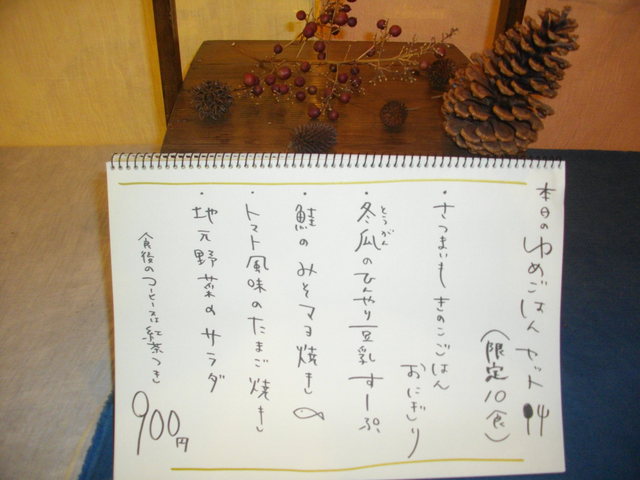 本日のゆめごはんセット
(限定10食)
・さつまいもきのこごはん
おにぎり
・冬瓜のひんやり豆乳すーぷ
とうがん
・鮭のみそマヨ焼き
・トマト風味のたまご焼き
・地元野菜のサラダ
食後のコーヒー又は紅茶つき
900円